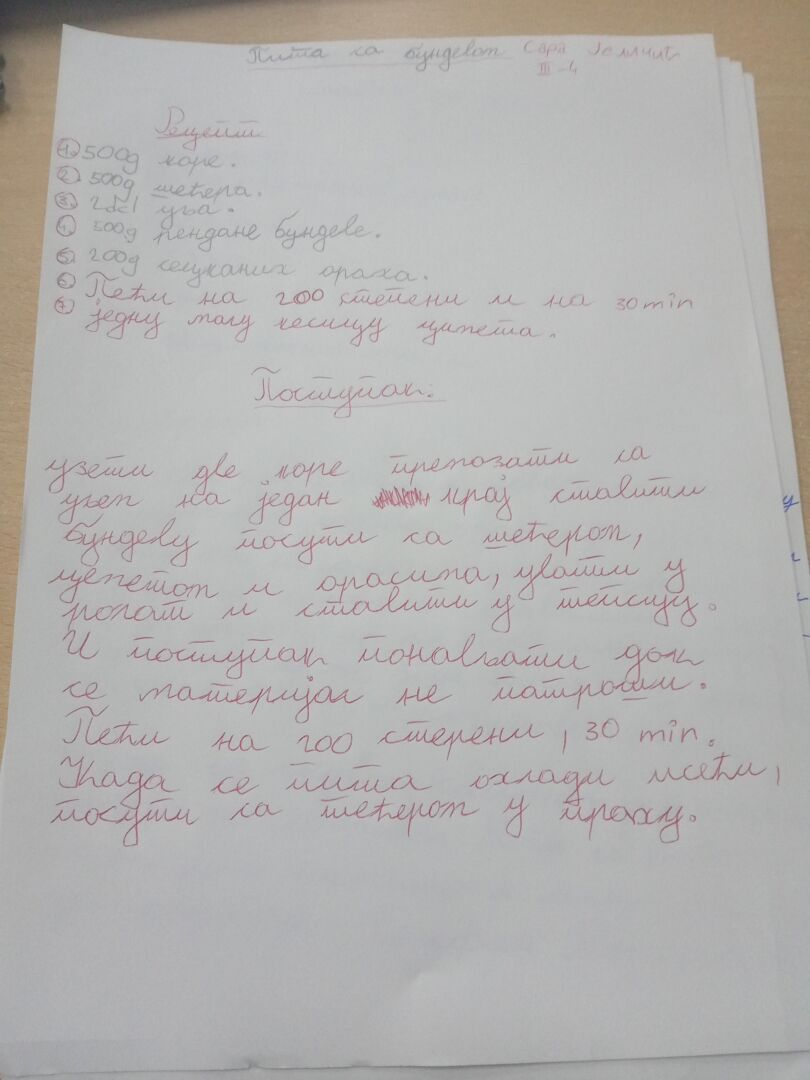 Пита са бундевом Сара Јеличић
III-4
Рецепт
1. 500g коре.
2. 500g шећера.
3. 2dcl уља.
4. 500g рендане бундеве.
5. 200g сецканих ораха.
6. Пећи на 200 степени и на 30 min
7. једну малу кесицу цимета.
Поступак:
узети две коре премазати са
уљем на један крај ставити
бундеву посути са шећером,
циметом и орасима, увити у
ролат и ставити у тепсију.
И поступак понављати док
се материјал не потроши.
Пећи на 200 степени, 30 min.
Када се пита охлади исећи,
посути са шећером у праху.